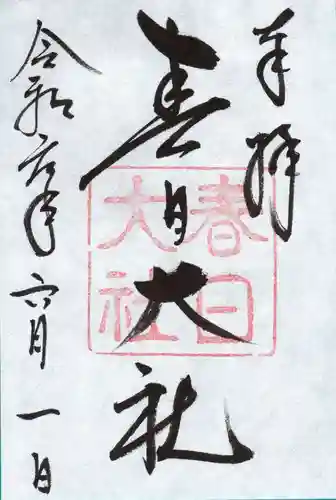 奉拝
春日大社
春日
大社
令和六年六月一日